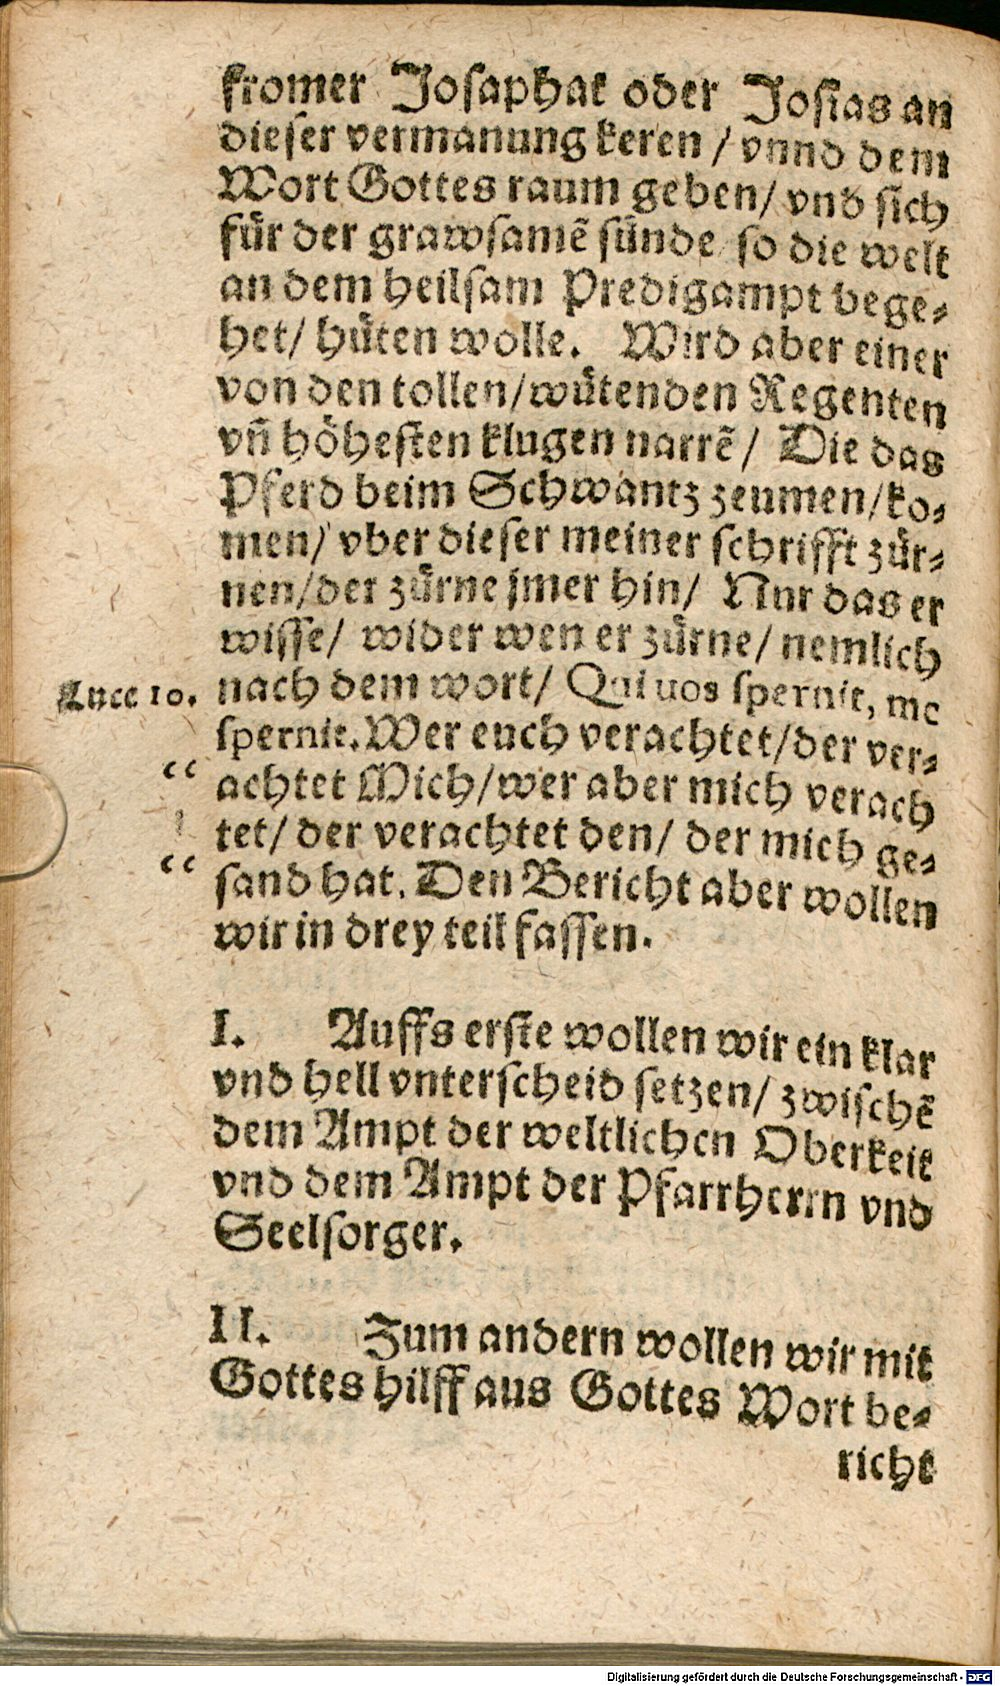 fromer Josaphat oder Josias an
dieser vermanung keren / vnnd dem
Wort Gottes raum geben / vnd sich
für der grawsamẽ sünde / so die welt
an dem heilsam Predigampt bege⸗
het / hüten wolle. Wird aber einer
von den tollen / wütenden Regenten
vñ höhesten klugen narrẽ / Die das
Pferd beim Schwantz zeumen / ko⸗
men / vber dieser meiner schrifft zür⸗
nen / der zürne jmer hin / Nur das er
wisse / wider wen er zürne / nemlich
Luce 10. nach dem wort / Qui uos spernit, me
spernit. Wer euch verachtet / der ver⸗
“ achtet Mich / wer aber mich verach
tet / der verachtet den / der mich ge⸗
“ sand hat. Den Bericht aber wollen
wir in drey teil fassen.
I. Auffs erste wollen wir ein klar
vnd hell vnterscheid setzen / zwischẽ
dem Ampt der weltlichen Oberkeit
vnd dem Ampt der Pfarrherrn vnd
Seelsorger.
II. Zum andern wollen wir mit
Gottes hilff aus Gottes Wort be⸗
richt
Digitalisierung gefördert durch die Deutsche Forschungsgemeinschaft - DFG